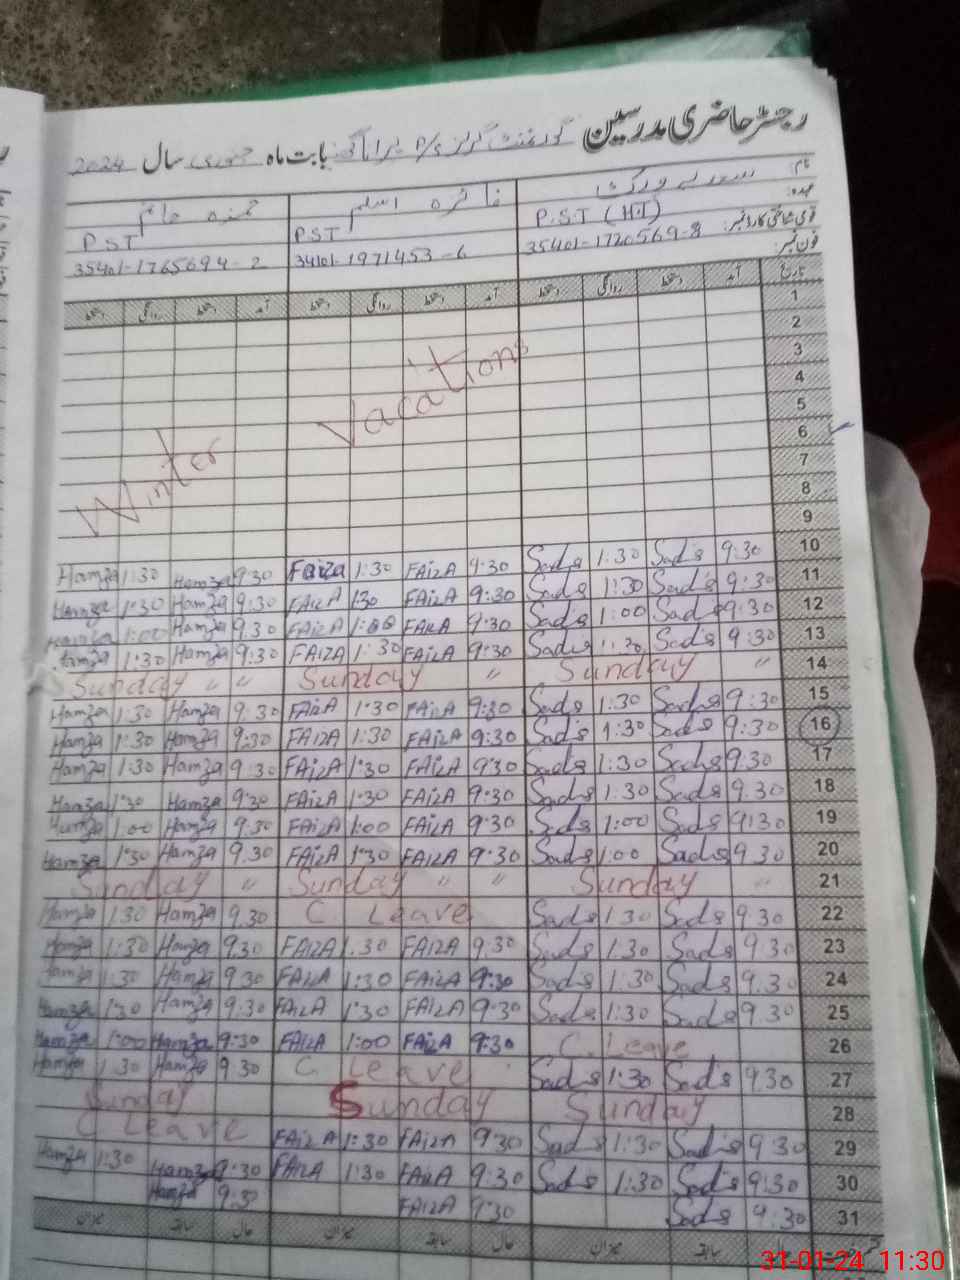 رجسٹر حاضری مدرسین گورنمنٹ گرلز P/S بابت ماہ جنوری سال 2024
نام:
عہدہ: P.S.T (H.T) PST PST
قومی شناختی کارڈ نمبر: 35401-1720569-8 34101-1971453-6 35401-1765694-2
فون نمبر:
تاریخ آمد دستخط روانگی دستخط آمد دستخط روانگی دستخط آمد دستخط روانگی دستخط
1
2
3
4
5
6
7
8
9
Winter Vacations
Hamza 1:30 Hamza 9:30 Faiza 1:30 FAIZA 9:30 Sads 1:30 Sads 9:30 10
Hamza 1:30 Hamza 9:30 FAIZA 1:30 FAIZA 9:30 Sads 1:30 Sads 9:30 11
1:00 Hamza 9:30 FAIZA 1:00 FAIZA 9:30 Sads 1:00 Sads 9:30 12
Hamza 1:30 Hamza 9:30 FAIZA 1:30 FAIZA 9:30 Sads Sads 9:30 13
Sunday " " Sunday " Sunday " 14
Hamza 1:30 Hamza 9:30 FAIZA 1:30 FAIZA 9:30 Sads 1:30 Sads 9:30 15
Hamza 1:30 Hamza 9:30 FAIZA 1:30 FAIZA 9:30 Sads 1:30 Sads 9:30 16
Hamza 1:30 Hamza 9:30 FAIZA 1:30 FAIZA 9:30 Sads 1:30 Sads 9:30 17
Hamza 1:30 Hamza 9:30 FAIZA 1:30 FAIZA 9:30 Sads 1:30 Sads 9:30 18
Hamza 1:00 Hamza 9:30 FAIZA 1:00 FAIZA 9:30 Sads 1:00 Sads 9:30 19
Hamza 1:30 Hamza 9:30 FAIZA 1:30 FAIZA 9:30 Sads 1:00 Sads 9:30 20
Sunday " Sunday " " Sunday " 21
Hamza 1:30 Hamza 9:30 C. Leave Sads 1:30 Sads 9:30 22
Hamza 1:30 Hamza 9:30 FAIZA 1:30 FAIZA 9:30 Sads 1:30 Sads 9:30 23
Hamza 1:30 Hamza 9:30 FAIZA 1:30 FAIZA 9:30 Sads 1:30 Sads 9:30 24
Hamza 1:30 Hamza 9:30 FAIZA 1:30 FAIZA 9:30 Sads 1:30 Sads 9:30 25
Hamza 1:00 Hamza 9:30 FAIZA 1:00 FAIZA 9:30 C. Leave 26
Hamza 1:30 Hamza 9:30 C. Leave Sads 1:30 Sads 9:30 27
Sunday Sunday Sunday 28
C Leave FAIZA 1:30 FAIZA 9:30 Sads 1:30 Sads 9:30 29
Hamza 1:30 Hamza 9:30 FAIZA 1:30 FAIZA 9:30 Sads 1:30 Sads 9:30 30
Hamza 9:30 FAIZA 9:30 Sads 9:30 31
حال سابقہ میزان حال سابقہ میزان حال سابقہ میزان
31-01-24 11:30